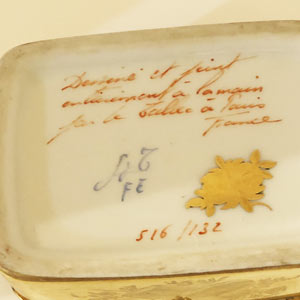 Dessiné et peint
entièrement à la main
par Le Tallec à Paris
France
FE
516/132